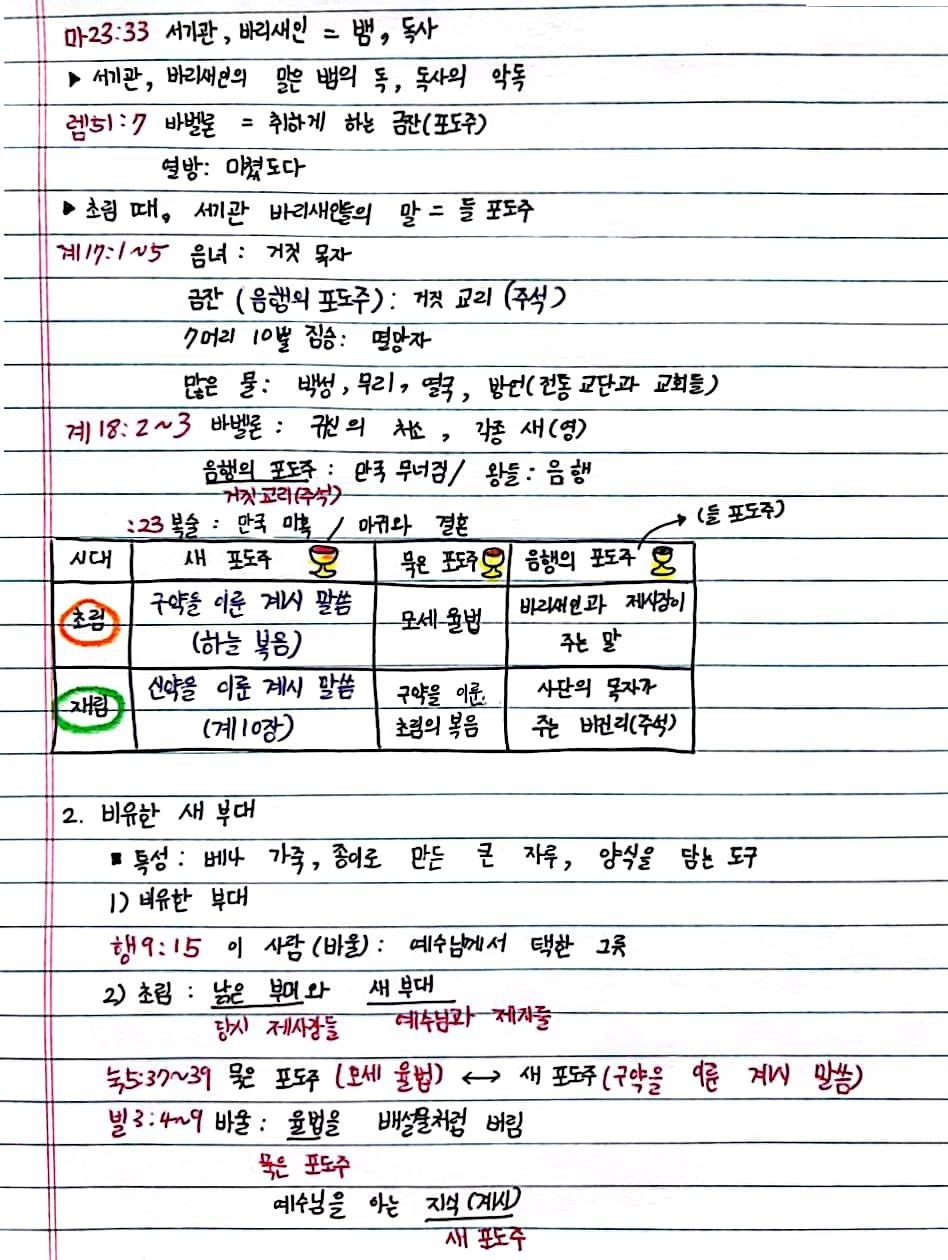 마23:33 서기관, 바리새인 = 뱀, 독사
▶ 서기관, 바리새인의 말은 뱀의 독, 독사의 악독
렘51:7 바벨론 = 취하게 하는 금잔(포도주)
열방: 미쳤도다
▶ 초림 때, 서기관 바리새인들의 말 = 들 포도주
계17:1~5 음녀: 거짓 목자
금잔 (음행의 포도주): 거짓 교리 (주석)
7머리 10뿔 짐승: 멸망자
많은 물: 백성, 무리, 열국, 방언(전통 교단과 교회들)
계18:2~3 바벨론: 귀신의 처소, 각종 새(영)
음행의 포도주: 만국 무너짐/ 왕들: 음행
거짓교리(주석)
:23 복술: 만국 미혹 / 마귀와 결혼
(들 포도주)
시대 새 포도주 묵은 포도주 음행의 포도주
초림 구약을 이룬 계시 말씀 (하늘 복음) 모세 율법 바리새인과 제사장이 주는 말
재림 신약을 이룬 계시 말씀 (계10장) 구약을 이룬 초림의 복음 사단의 목자가 주는 비진리(주석)
2. 비유한 새 부대
▪ 특성: 베나 가죽, 종이로 만든 큰 자루, 양식을 담는 도구
1) 비유한 부대
행9:15 이 사람(바울): 예수님께서 택한 그릇
2) 초림: 낡은 부대와 새 부대
당시 제사장들 예수님과 제자들
눅5:37~39 묵은 포도주 (모세 율법) ↔ 새 포도주(구약을 이룬 계시 말씀)
빌3:4~9 바울: 율법을 배설물처럼 버림
묵은 포도주
예수님을 아는 지식(계시)
새 포도주